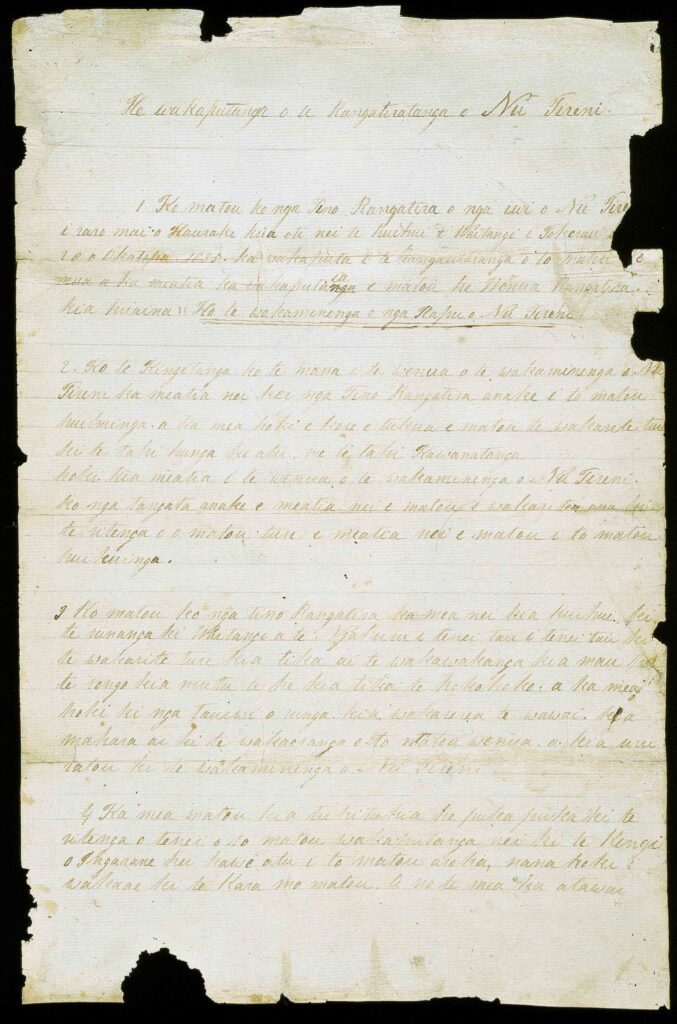 He wakaputanga o te Rangatiratanga o Nu Tireni.
1. Ko matou ko nga Tino Rangatira o nga iwi o Nu Tire
i raro mai o Hauraki kia oti nei te huihui i Waitangi i Tokerau
28 o Oketopa 1835. ka wakaputa i te Rangatiratanga o to matou
a ka meatia ka wakaputaia e matou he Wenua Rangatira.
kia huaina "Ko te wakaminenga o nga Hapu o Nu Tireni
2. Ko te Kingitanga ko te mana i te wenua o te wakaminenga o Nu
Tireni ka meatia nei kei nga Tino Rangatira anake i to matou
huihuinga. a ka mea hoki e kore e tukua e matou te wakarite ture
ki te tahi hunga ke atu, me te tahi Kawanatanga
hoki kia meatia i te wenua o te wakaminenga o Nu Tireni.
ko nga tangata anake e meatia nei e matou e wakarite ana ki
te ritenga o o matou ture e meatia nei e matou i to matou
huihuinga.
3 Ko matou ko nga tino Rangatira ka mea nei kia huihui ki
te runanga ki Waitangi a te Ngahuru i tenei tau i tenei tau ki
te wakarite ture kia tika ai te wakawakanga kia mau
te rongo kia mutu te he kia tika te hokohoko. a ka mea
hoki ki nga tauiwi o runga. kia wakarerea te wawai. kia
mahara ai ki te wakaoranga o to matou wenua. a kia uru
ratou ki te wakaminenga o Nu Tireni.
4 Ka mea matou kia tuhituhia he puka puka ki te
ritenga o tenei o to matou wakaputanga nei ki te Kingi
o Ingarane hei kawe atu i to matou aroha, nana hoki i
wakaae ki te Kara mo matou. A no te mea ka atawai